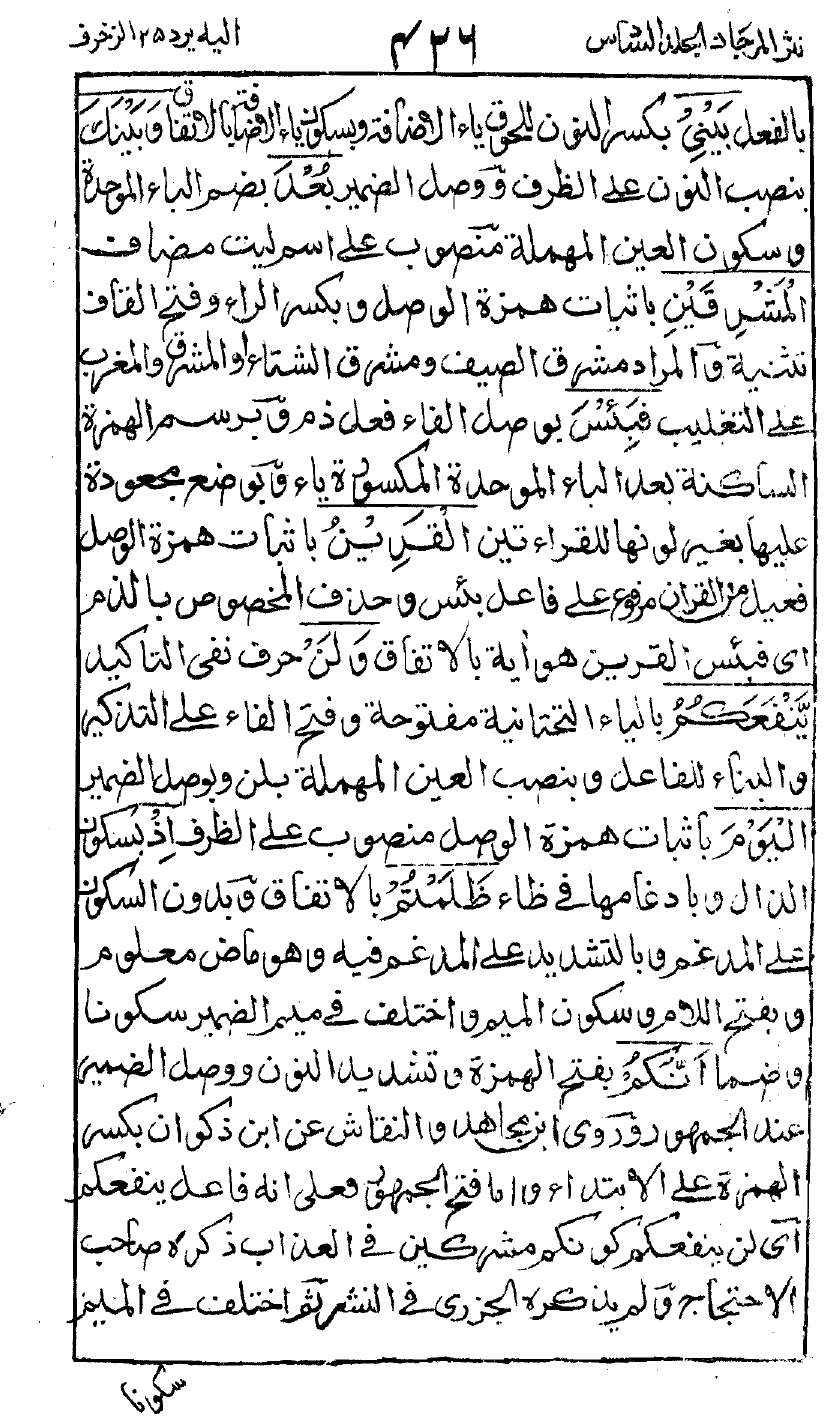 نثر المرجان الجلد السادس ٤٣٦ اليه يرد ٢٥ الزخرف
بالفعل بَيْنِيْ بكسر النون للحوق ياء الاضافة وبسكون ياء الاضافة بالاتفاق وَبَيْنَكَ
بنصب النون على الظرف ووصل الضمير بُعْدَ بضم الباء الموحدة
وسكون العين المهملة منصوب على اسم ليت مضاف
الْمَشْرِقَيْنِ باثبات همزة الوصل وبكسر الراء وفتح القاف
تثنية والمراد مشرق الصيف ومشرق الشتاء او المشرق والمغرب
على التغليب فَبِئْسَ بوصل الفاء فعل ذم وبرسم الهمزة
الساكنة بعد الباء الموحدة المكسورة ياء وبوضع مجعودة
عليها بغير لونها للقراءتين الْقَرِيْنُ باثبات همزة الوصل
فعيل من القران مرفوع على فاعل بئس وحذف المخصوص بالذم
اى فبئس القرين هو اية بالاتفاق وَلَنْ حرف نفى التاكيد
يَّنْفَعَكُمُ بالياء التحتانية مفتوحة وفتح الفاء على التذكير
والبناء للفاعل وبنصب العين المهملة بلن وبوصل الضمير
الْيَوْمَ باثبات همزة الوصل منصوب على الظرف اِذْ بسكون
الذال وبادغامها فى ظاء ظَلَمْتُمْ بالاتفاق وبدون السكون
على المدغم وبالتشديد على المدغم فيه وهو ماض معلوم
وبفتح اللام وسكون الميم واختلف فى ميم الضمير سكونا
وضما اَنَّكُمْ بفتح الهمزة وتشديد النون ووصل الضمير
عند الجمهور وروى ابن مجاهد والنقاش عن ابن ذكوان بكسر
الهمزة على الابتداء واما فتح الجمهور فعلى انه فاعل ينفعكم
اى لن ينفعكم كونكم مشركين فى العذاب ذكره صاحب
الاحتجاج ولم يذكره الجزرى فى النشر ثم اختلف فى الميم
سكونا